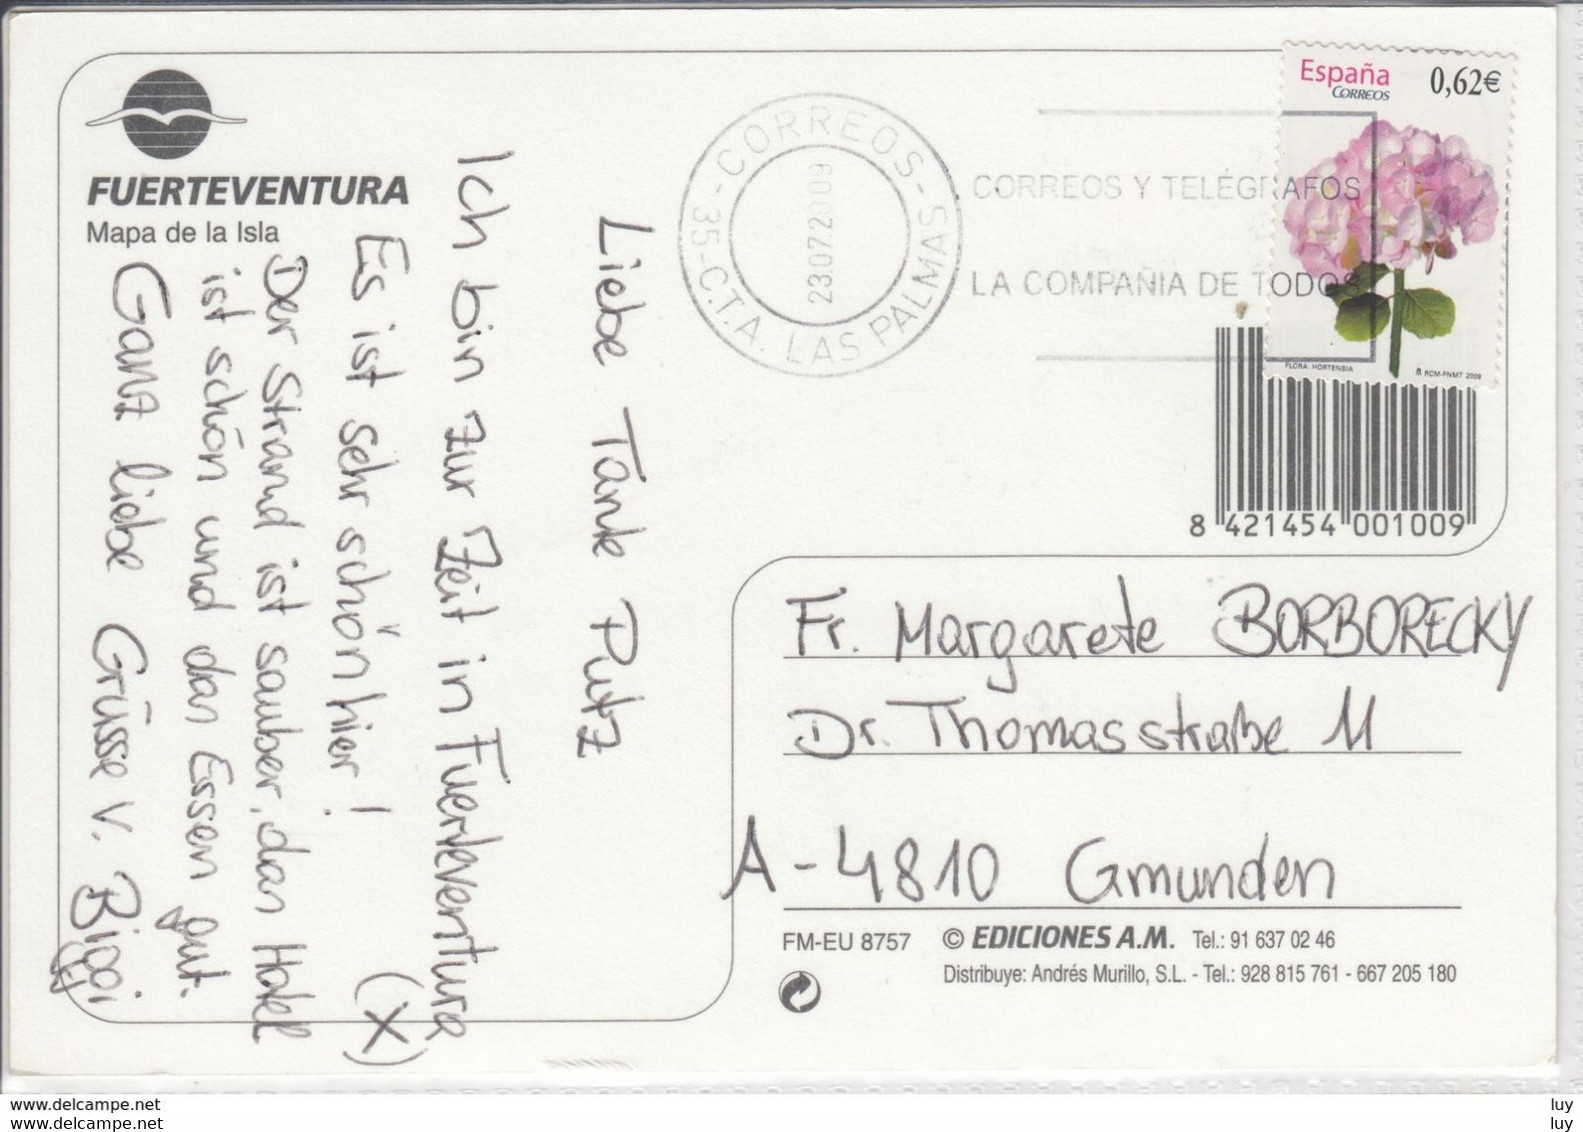 FUERTEVENTURA
Mapa de la Isla
Liebe Tante Putz
Ich bin zur Zeit in Fuerteventura
Es ist sehr schön hier! (X)
Der Strand ist sauber, das Hotel
ist schön und das Essen gut.
Ganz liebe Grüsse v. Biggi
CORREOS
35-C.T.A. LAS PALMAS
23.07.2009
CORREOS Y TELÉGRAFOS
LA COMPAÑIA DE TODOS
España
CORREOS
0,62€
FLORA: HORTENSIA
RCM-FNMT 2009
8 421454 001009
Fr. Margarete BORBORECKY
Dr. Thomasstraße 11
A-4810 Gmunden
FM-EU 8757 © EDICIONES A.M. Tel.: 91 637 02 46
Distribuye: Andrés Murillo, S.L. - Tel.: 928 815 761 - 667 205 180
www.delcampe.net
www.delcampe.net
luy
luy